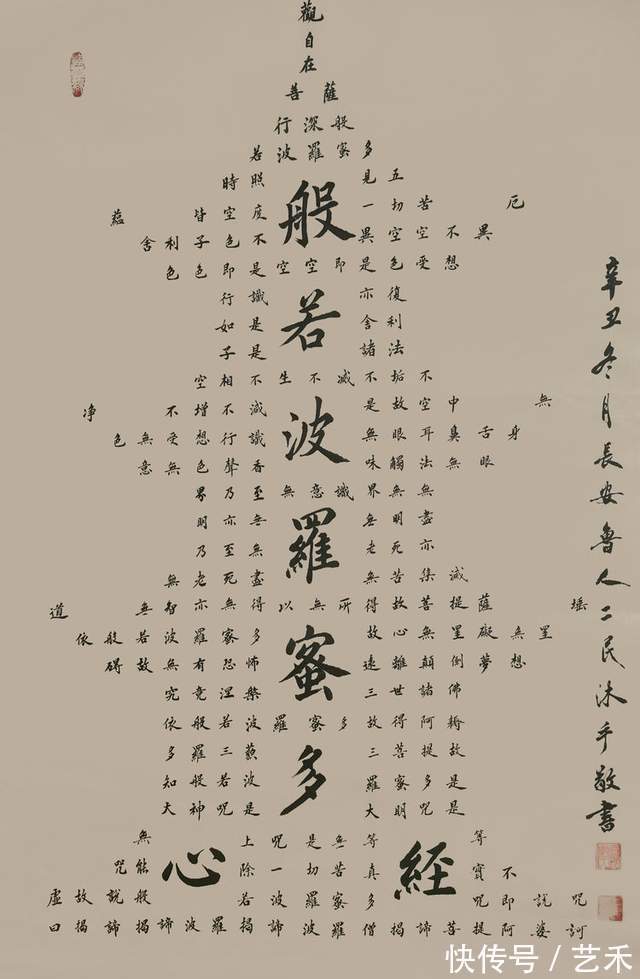 觀
自
在
菩薩
行深般
若波羅蜜多
時照見五
蘊皆空度一切苦厄
舍利子色不異空空不異
色色即是空空即是色受想
行識亦復
如是舍利
子是諸法
空相不生不滅不垢不
净不增不減是故空中無
色無受想行識無眼耳鼻舌身
意無色聲香味觸法無眼
界乃至無意識界無無
明亦無無明盡
乃至無老死亦
無老死盡無苦集滅
道無智亦無得以無所得故菩提薩埵
依般若波羅蜜多故心無罣礙無罣
碍故無有恐怖遠離顛倒夢想
究竟涅槃三世諸佛
依般若波羅蜜多故得阿耨
多羅三藐三菩提故
知般若波羅蜜多是
大神咒是大明咒是
無上咒是無等等
咒能除一切苦真實不
虛故說般若波羅蜜多咒即說咒
曰揭諦揭諦波羅揭諦波羅僧揭諦菩提婆訶
般若波羅蜜多心經
辛丑冬月長安魯人二民沐手敬書
快传号/艺禾